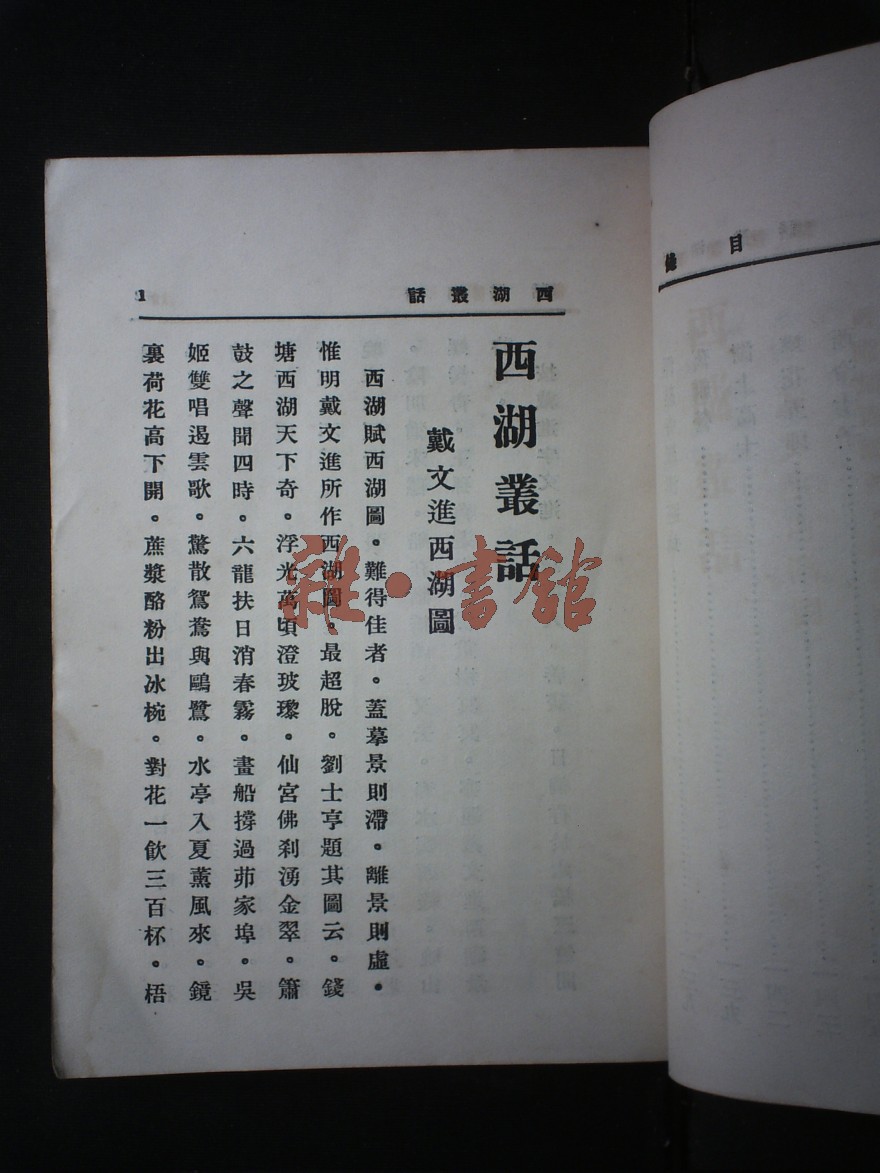 西湖叢話
1
西湖叢話
戴文進西湖圖
西湖賦西湖圖。難得佳者。蓋摹景則滯。離景則虛。
惟明戴文進所作西湖圖。最超脫。劉士亨題其圖云。錢
塘西湖天下奇。浮光萬頃澄玻瓈。仙宮佛刹湧金翠。簫
鼓之聲聞四時。六龍扶日消春霧。畫船撐過茆家埠。吳
姬雙唱遏雲歌。驚散鴛鴦與鷗鷺。水亭入夏薰風來。鏡
裏荷花高下開。蔗漿酪粉出冰椀。對花一飲三百杯。梧
雜·書館
目錄